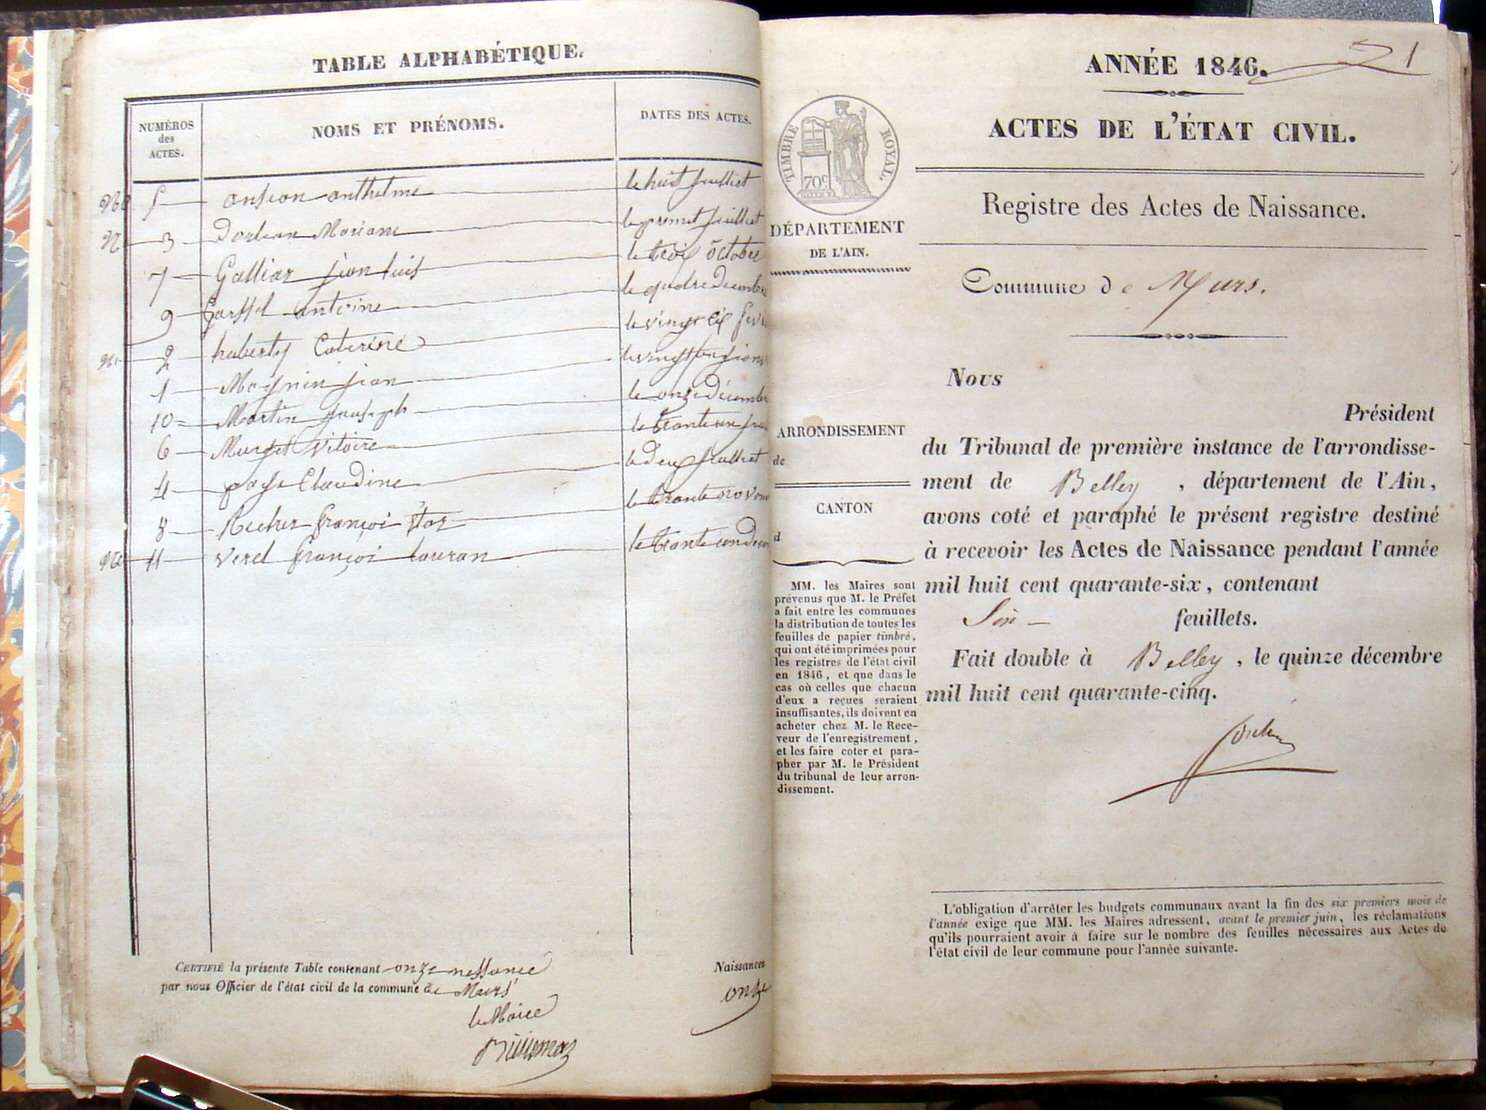 TABLE ALPHABÉTIQUE.
NUMÉROS
des
ACTES.
NOMS ET PRÉNOMS.
DATES DES ACTES.
5 anthelme le huit juillet
3 Mariane le premet juillet
7 Galliaz jian luis le trois octobre
9 antoine le
2 huberty Caterine
1 Magnin jian
10 Martin jouseph le onze décembre
6 Murget Vitoire
4 paye Claudine le deux juillet
8 françoi
11 Verel françoi lauran
CERTIFIÉ la présente Table contenant onze nessance Naissances
par nous Officier de l'état civil de la commune de Murs onze
le Maire
ANNÉE 1846.
1
ACTES DE L'ÉTAT CIVIL.
TIMBRE ROYAL.
70c
Registre des Actes de Naissance.
DÉPARTEMENT
DE L'AIN.
Commune de Murs.
ARRONDISSEMENT
de
CANTON
d
MM. les Maires sont
prévenus que M. le Préfet
a fait entre les communes
la distribution de toutes les
feuilles de papier timbré,
qui ont été imprimées pour
les registres de l'état civil
en 1846, et que dans le
cas où celles que chacun
d'eux a reçues seraient
insuffisantes, ils doivent en
acheter chez M. le Rece-
veur de l'enregistrement,
et les faire coter et para-
pher par M. le Président
du tribunal de leur arron-
dissement.
Nous
Président
du Tribunal de première instance de l'arrondisse-
ment de Belley, département de l'Ain,
avons coté et paraphé le présent registre destiné
à recevoir les Actes de Naissance pendant l'année
mil huit cent quarante-six, contenant
feuillets.
Fait double à Belley, le quinze décembre
mil huit cent quarante-cinq.
L'obligation d'arrêter les budgets communaux avant la fin des six premiers mois de
l'année exige que MM. les Maires adressent, avant le premier juin, les réclamations
qu'ils pourraient avoir à faire sur le nombre des feuilles nécessaires aux Actes de
l'état civil de leur commune pour l'année suivante.